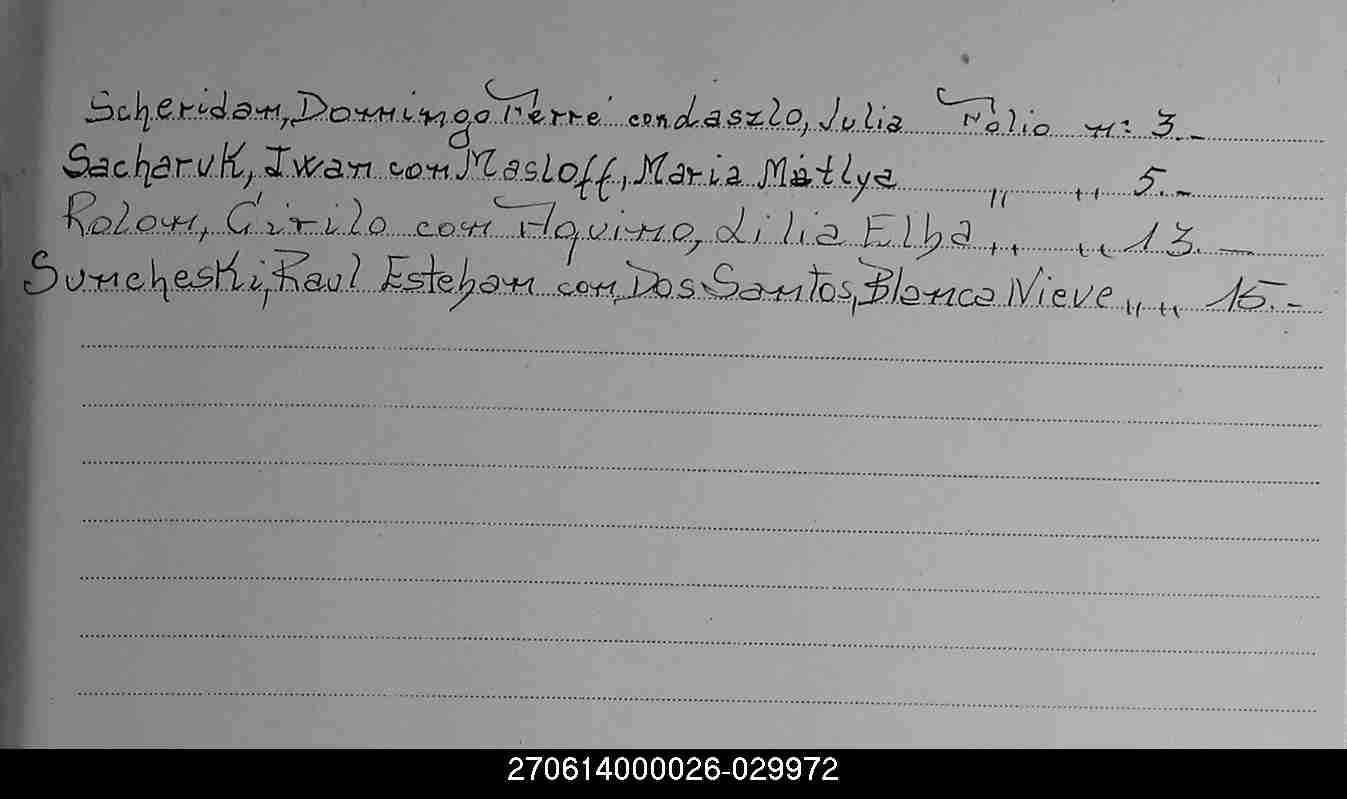 Scheridan, Domingo Ferré con Laszlo, Julia Folio n: 3.-
Sacharuk, Iwan con Masloff, Maria Matlya " " 5.-
Rolon, Cirilo con Aquino, Lilia Elba " " 13.-
Suncheski, Raul Esteban con, Dos Santos, Blanca Nieve " " 15.-
270614000026-029972